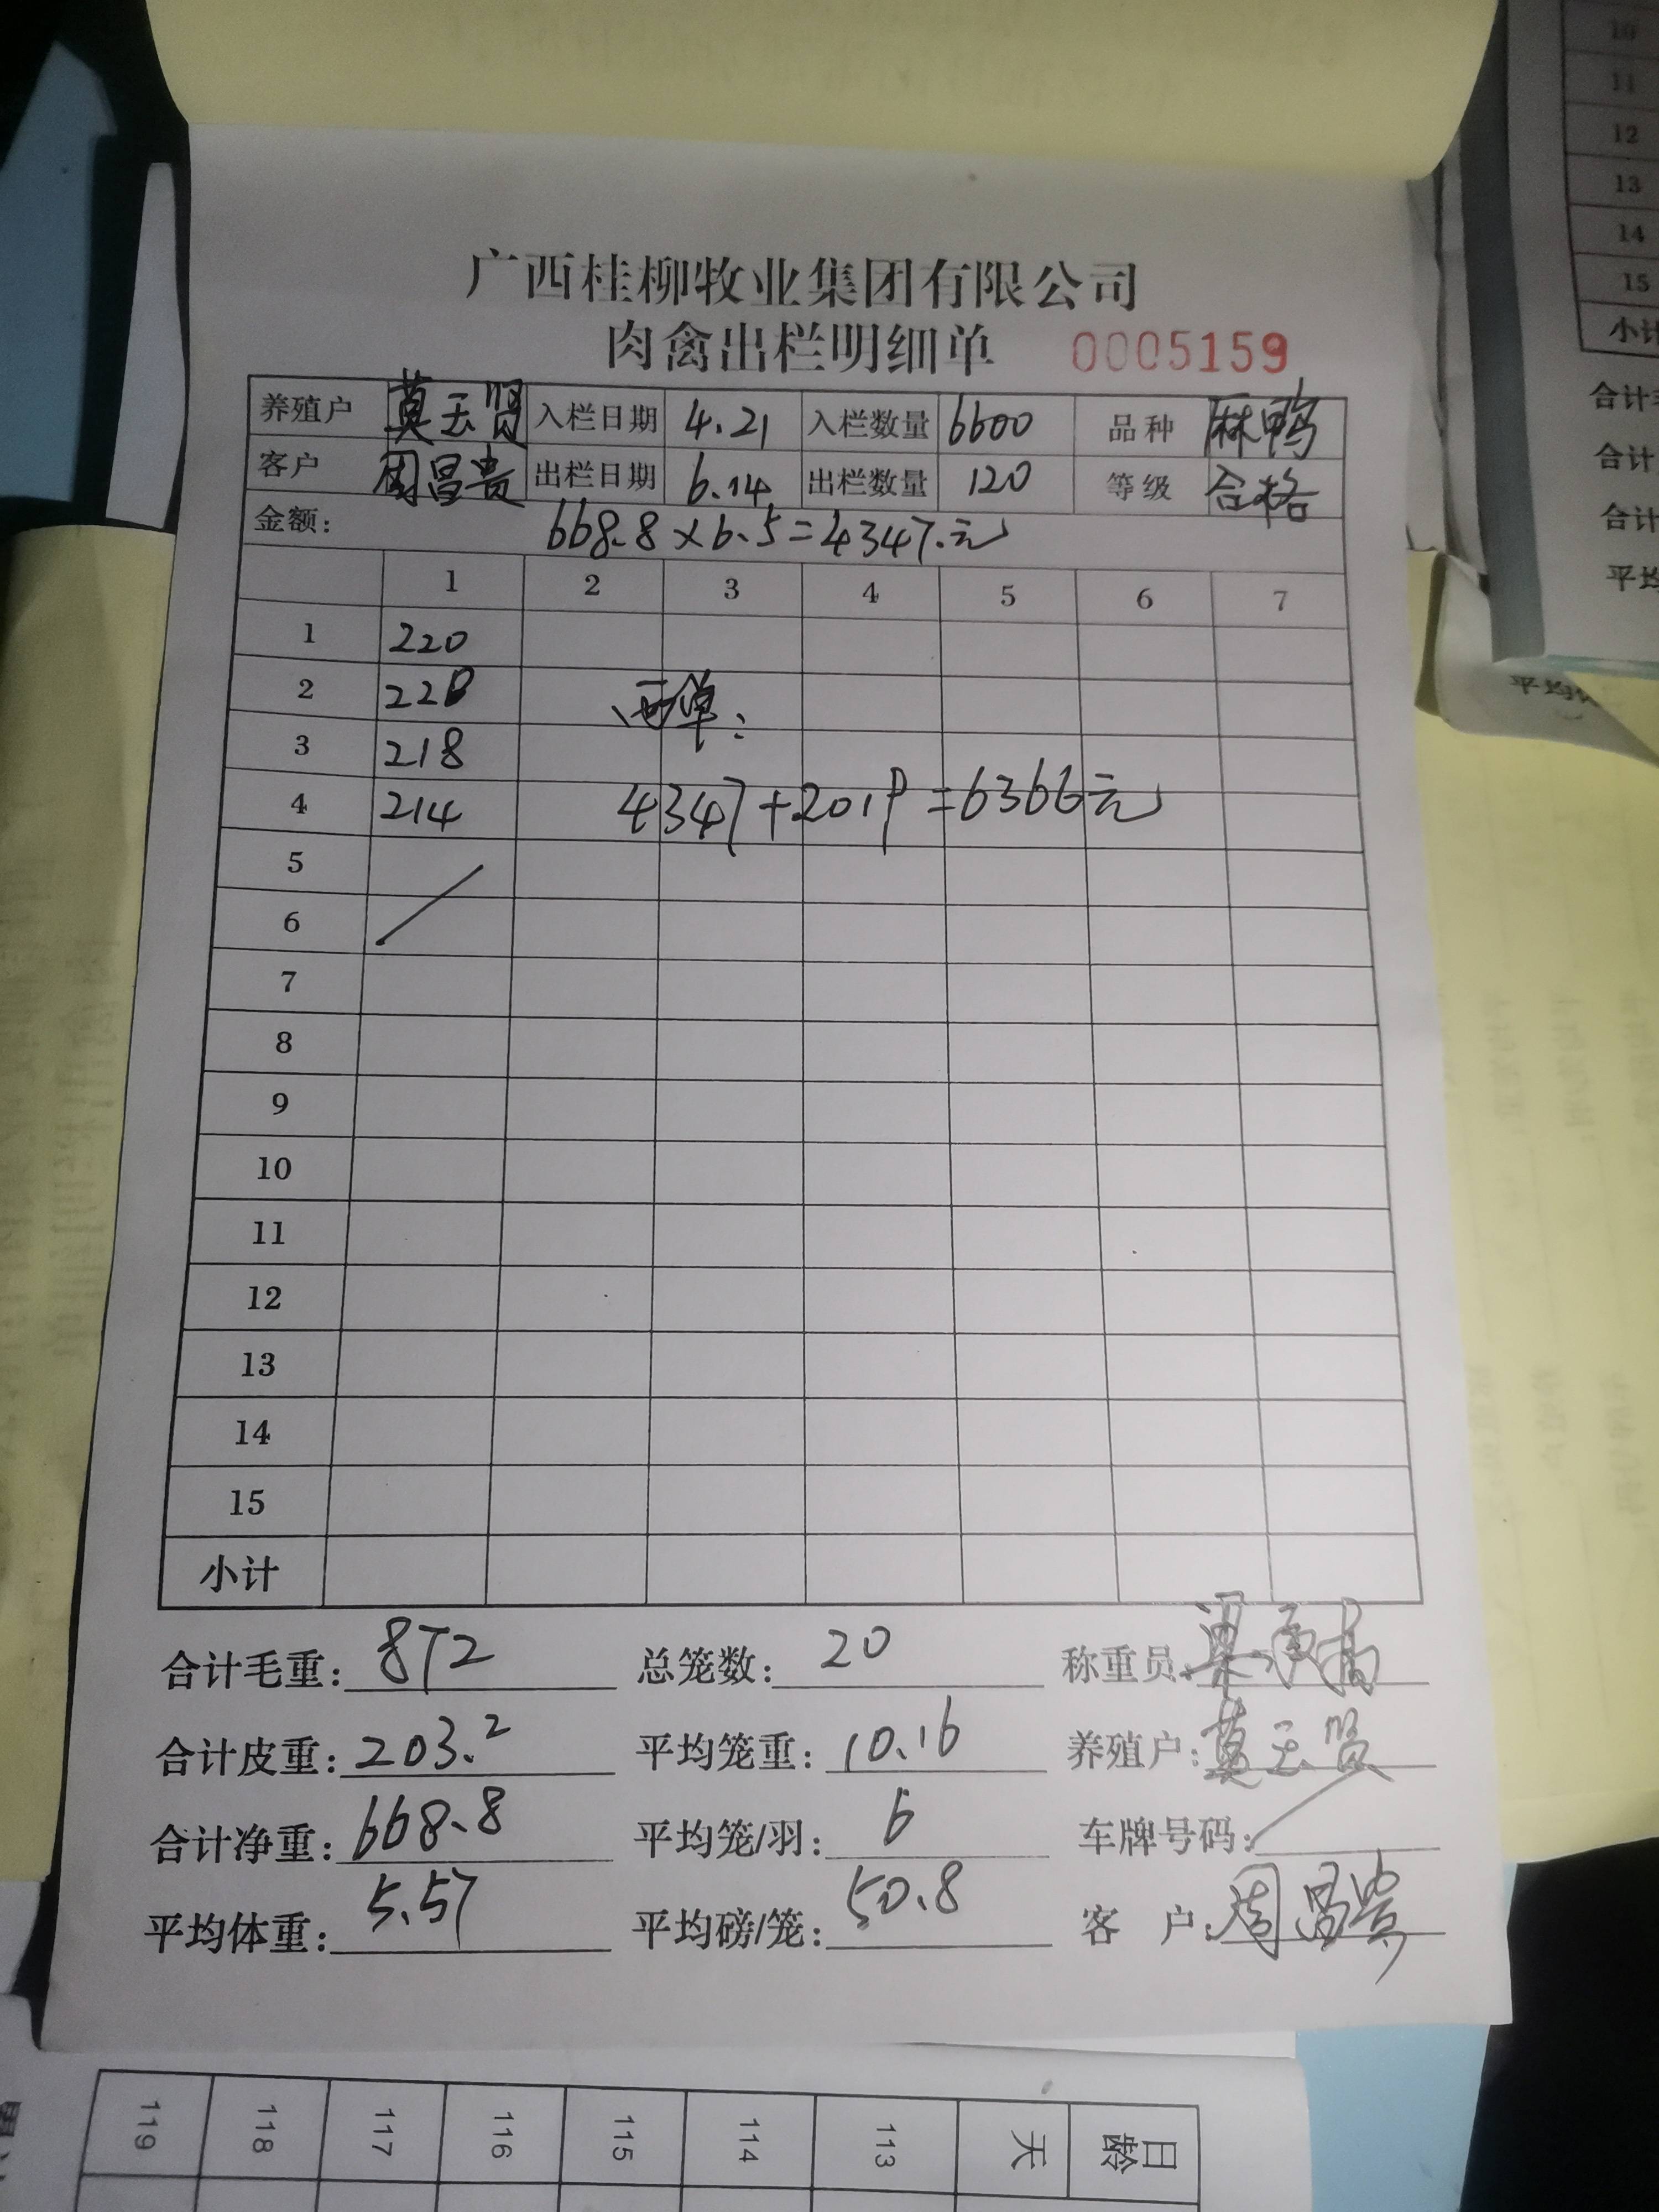 广西桂柳牧业集团有限公司
肉禽出栏明细单 0005159
养殖户 莫玉贤 入栏日期 4.21 入栏数量 6600 品种 麻鸭
客户 周昌贵 出栏日期 6.14 出栏数量 120 等级 合格
金额： 668.8×6.5=4347.元
1 2 3 4 5 6 7
1 220
2 220 两单：
3 218
4 214 4347+2019=6366元
5
6
7
8
9
10
11
12
13
14
15
小计
合计毛重：872 总笼数：20 称重员：梁
合计皮重：203.2 平均笼重：10.16 养殖户：莫玉贤
合计净重：668.8 平均笼/羽：6 车牌号码：
平均体重：5.57 平均磅/笼：50.8 客 户：周昌贵
10
11
12
13
14
15
小计
合计
合计
合计
平均
平均
119 118 117 116 115 114 113 天 日龄